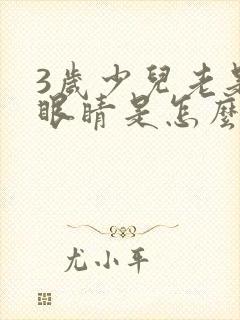 3歲少兒老是
眼睛是怎麼
尤小平